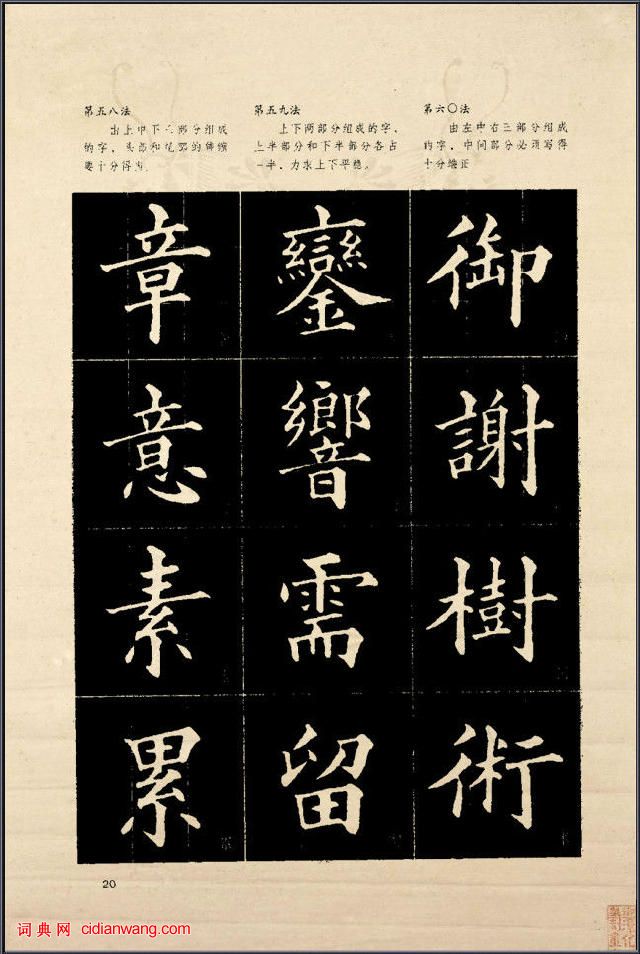 第五八法
由上中下三部分组成
的字，头部和尾部的伸缩
要十分得当
第五九法
上下两部分组成的字，
上半部分和下半部分各占
一半，力求上下平稳。
第六〇法
由左中右三部分组成
的字，中间部分必须写得
十分端正
章 鑾 御
意 響 謝
素 需 樹
累 留 術
20
词典网 cidianwang.com